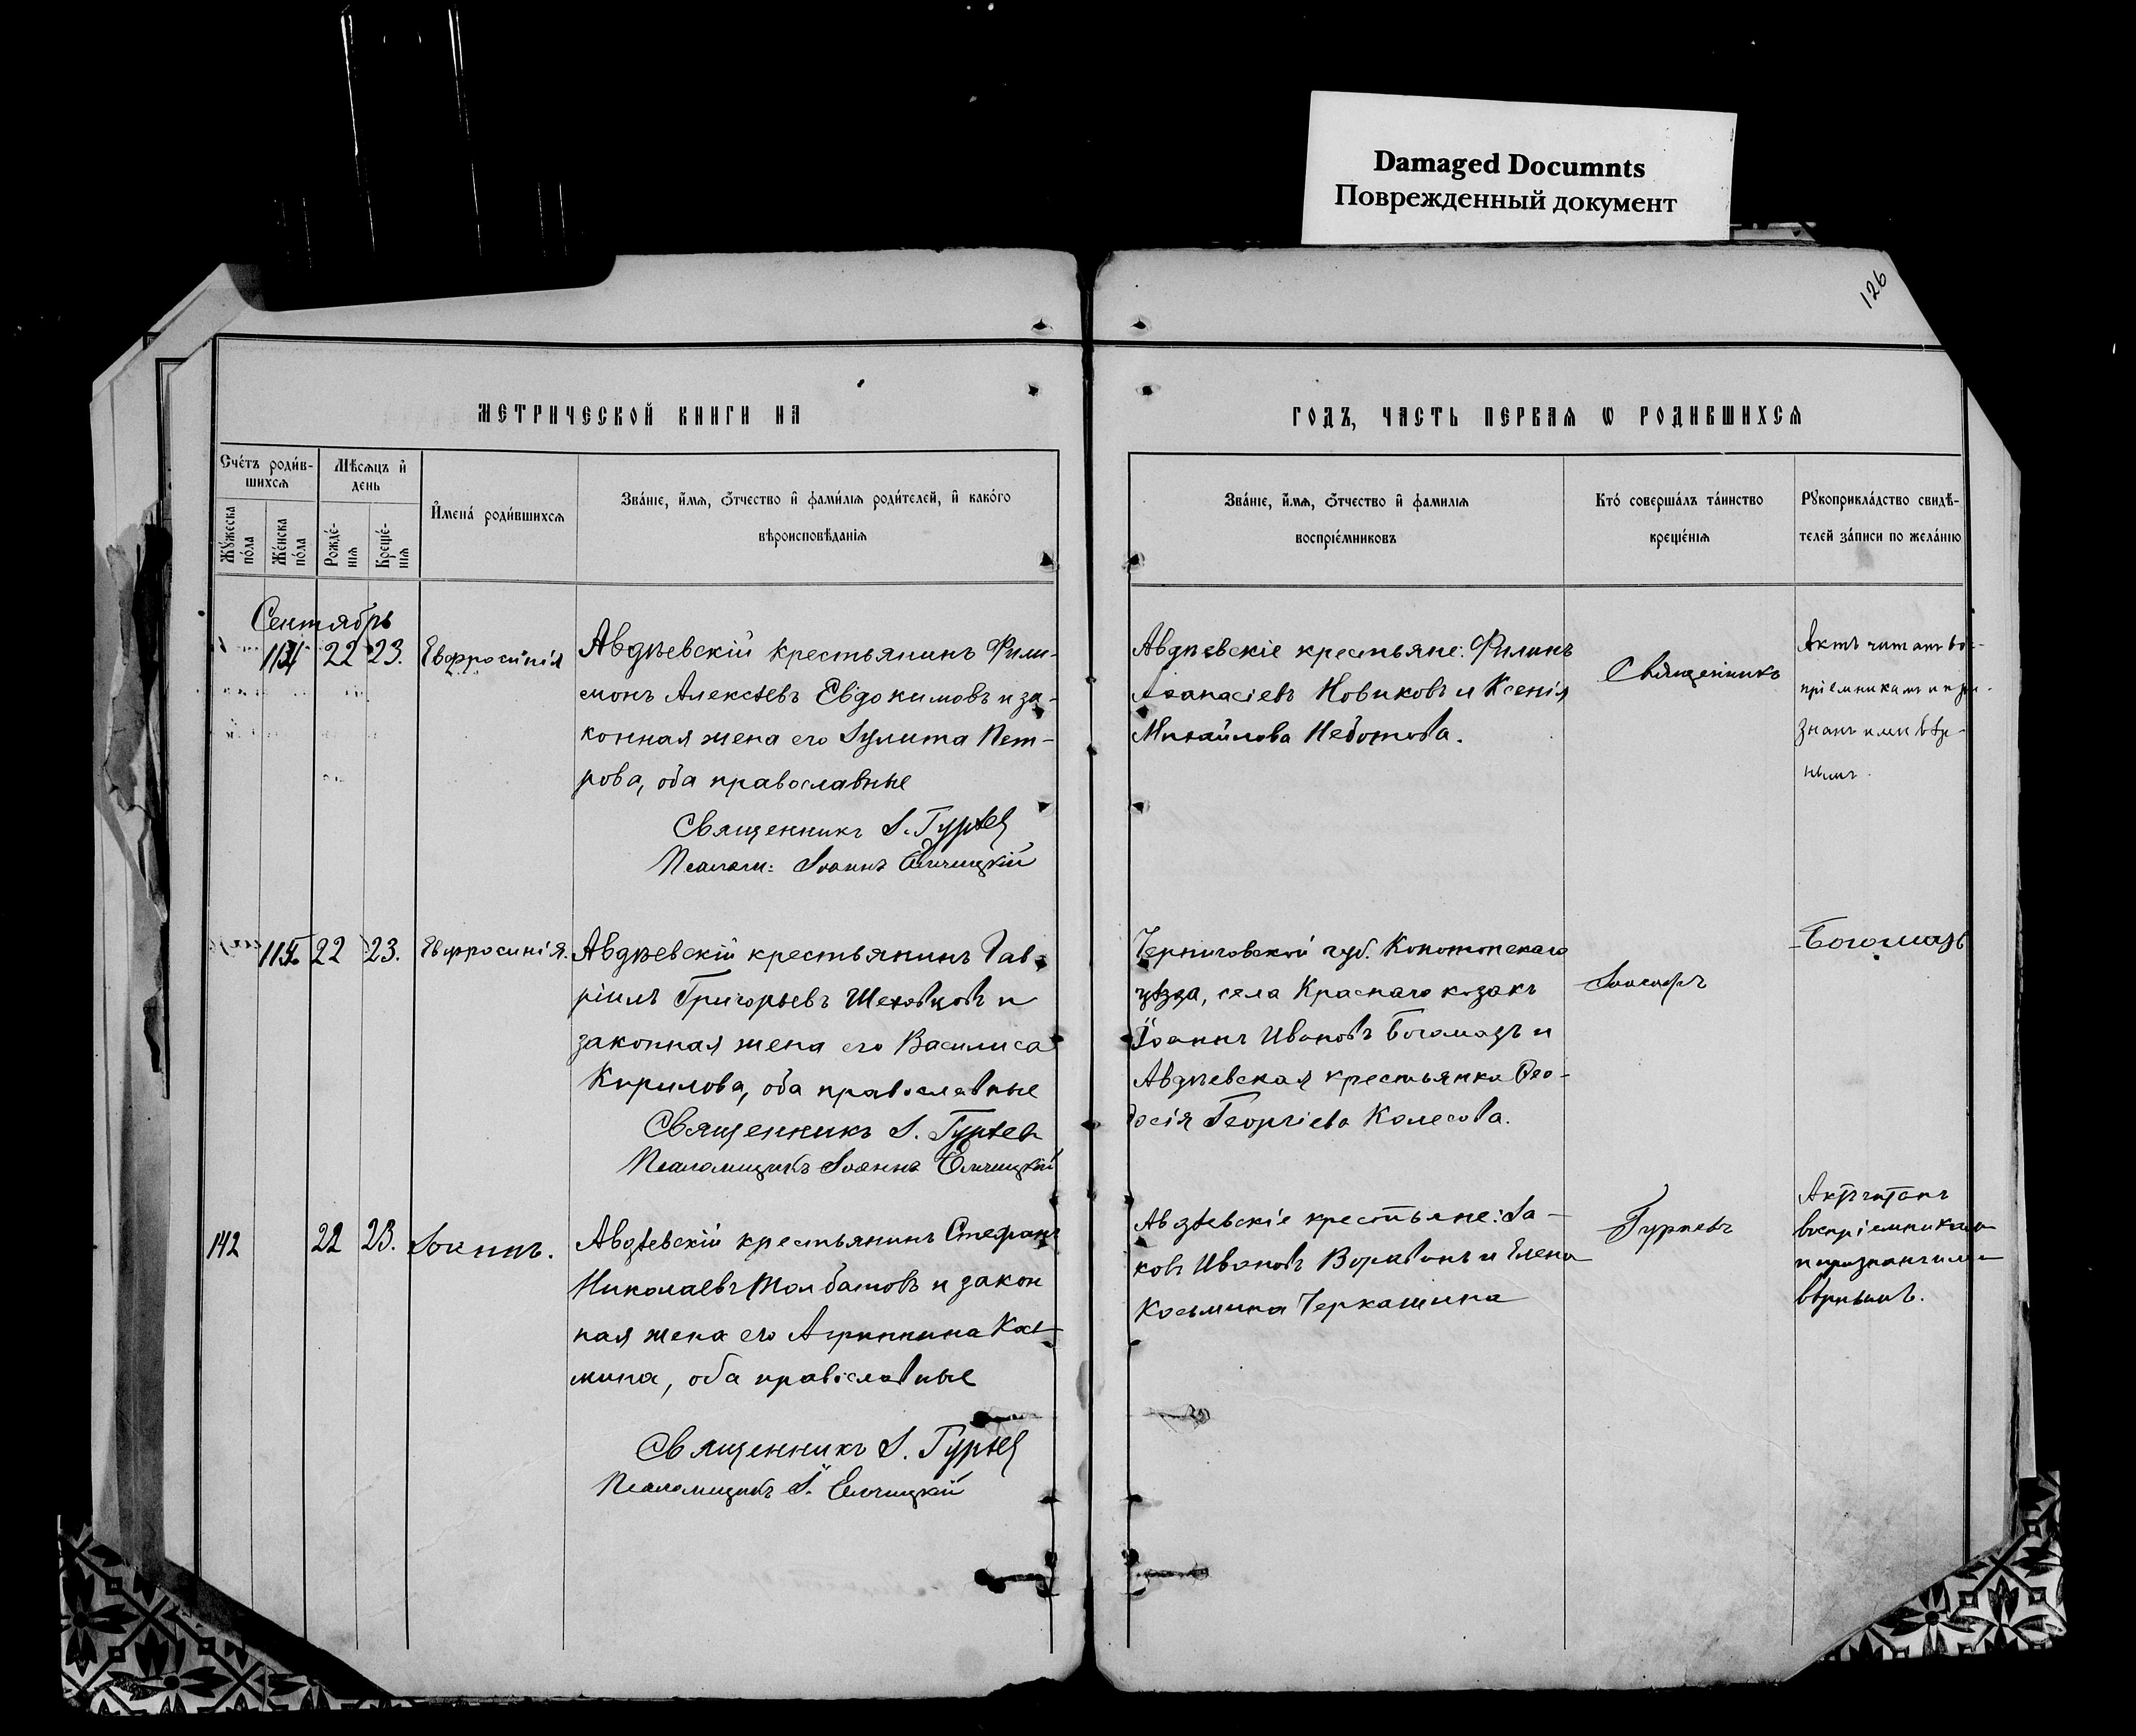 Damaged Documnts
Поврежденный документ
126
МЕТРИЧЕСКОЙ КНИГИ НА
ГОДЪ, ЧАСТЬ ПЕРВАЯ Ѡ РОДИВШИХСѦ
Счётъ роди́в-
шихсѧ
Мѣсѧцъ и҆
день
И҆мена̀ роди́вшихсѧ
Зва́нїе, и҆́мѧ, ѻ҆́тчество и҆ фами́лїѧ роди́телей, и҆ како́гѡ
вѣроисповѣ́данїѧ
Мꙋ́жеска
по́ла
Же́нска
по́ла
Рожде́-
нїѧ
Креще́-
нїѧ
Зва́нїе, и҆́мѧ, ѻ҆́тчество и҆ фами́лїѧ
воспрїе́мниковъ
Кто̀ соверша́лъ та́инство
креще́нїѧ
Рꙋкоприкла́дство свидѣ́-
телей за́писи по жела́нїю
Сентябрь
114 22 23. Евфросинія
Авдѣевскій крестьянинъ Фили-
монъ Алексѣевъ Евдокимовъ и за-
конная жена его Іулита Пет-
рова, оба православные
Священникъ І. Гурѣев
Псалом: Іоаннъ
Авдѣевскіе крестьяне: Филипъ
Аѳанасіевъ Новиковъ и Ксенія
Михайлова
Священникъ
Актъ читанъ вос-
пріемникамъ и при-
знанъ ими вѣр-
нымъ.
115 22 23. Евфросинія.
Авдѣевскій крестьянинъ Гав-
ріилъ Григорьевъ Шеховцовъ и
законная жена его Василиса
Кирилова, оба православные
Священникъ І. Гурѣевъ
Псаломщикъ Іоаннъ
Черниговской губ. Конотопскаго
уѣзда, села Краснаго козакъ
Іоаннъ Ивановъ Богомазъ и
Авдѣевская крестьянка Ѳео-
досія Георгіева Колесова.
Іоасафъ
Богомазъ
142 22 23. Іоаннъ.
Авдѣевскій крестьянинъ Стефанъ
Николаевъ Толбатовъ и закон
ная жена его Агриппина Кось
мина, оба православные
Священникъ І. Гурѣев
Псаломщикъ І.
Авдѣевскіе крестьяне: Іа-
ковъ Ивановъ и Елена
Косьмина Черкашина
Гурѣевъ
Актъ читанъ
воспріемникамъ
и признанъ ими
вѣрнымъ.